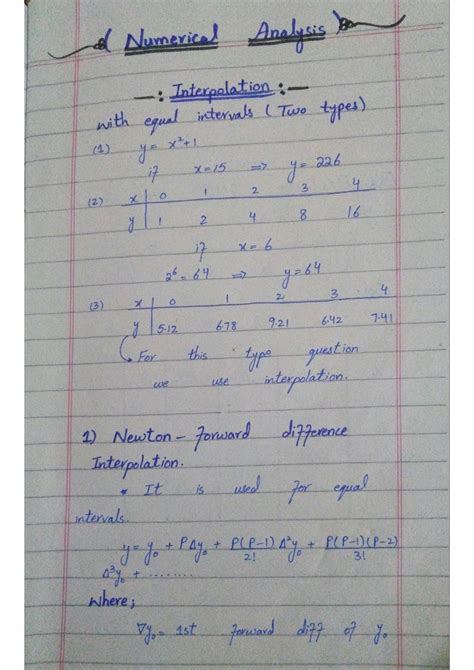 ( Numerical Analysis )
-: Interpolation :-
with equal intervals ( Two types)
(1) y = x²+1
if x=15 ⇒ y= 226
(2) x | 0 1 2 3 4
y | 1 2 4 8 16
if x = 6
2⁶ = 64 ⇒ y = 64
(3) x | 0 1 2 3 4
y | 5.12 6.78 9.21 6.42 7.41
For this type question
we use interpolation.
1) Newton - Forward difference
Interpolation.
* It is used for equal
intervals.
y = y₀ + PΔy₀ + P(P-1)/2! Δ²y₀ + P(P-1)(P-2)/3!
Δ³y₀ + ........
Where;
∇y₀ = 1st forward diff of y₀